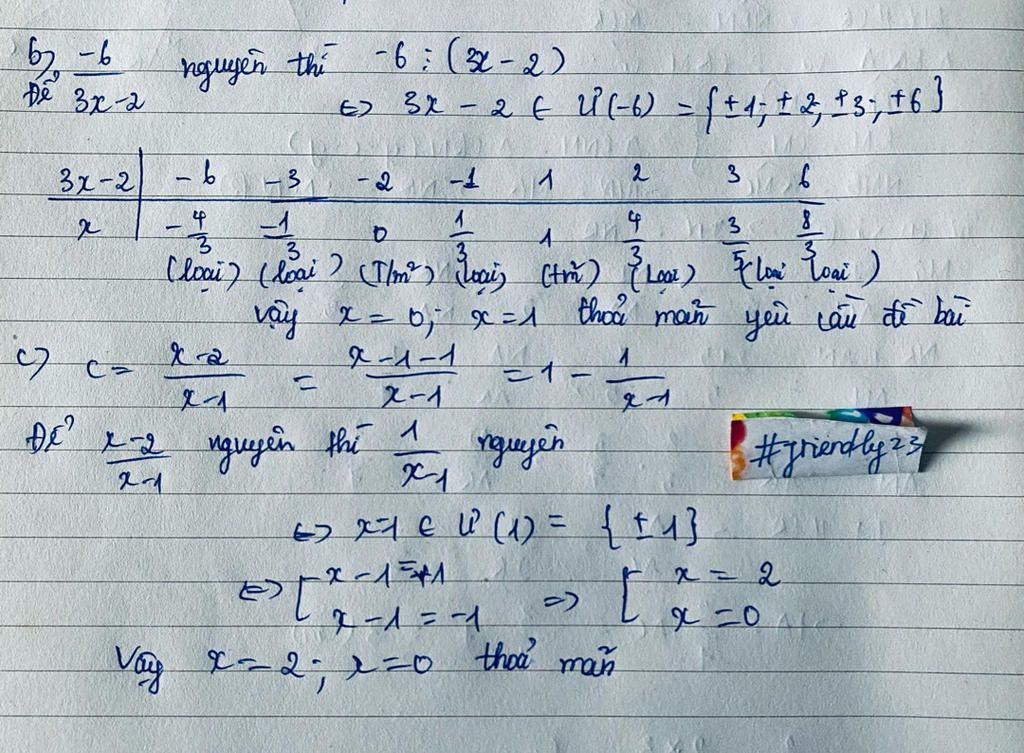 b) -6/(3x-2) nguyên thì -6 ⋮ (3x-2)
Để
⇔ 3x - 2 ∈ Ư(-6) = {±1; ±2; ±3; ±6}
3x-2 | -6 -3 -2 -1 1 2 3 6
x | -4/3 -1/3 0 1/3 1 4/3 5/3 8/3
(loại) (loại) (T/m²) (loại) (t/m) (Loại) (loại loại)
vậy x = 0; x = 1 thoả mãn yêu cầu đề bài
c) C = (x-2)/(x-1) = (x-1-1)/(x-1) = 1 - 1/(x-1)
Để (x-2)/(x-1) nguyên thì 1/(x-1) nguyên
#friendly23
⇔ x-1 ∈ Ư(1) = {±1}
⇔ [ x-1=+1 ⇒ [ x = 2
x-1 = -1 x = 0
Vậy x = 2; x = 0 thoả mãn